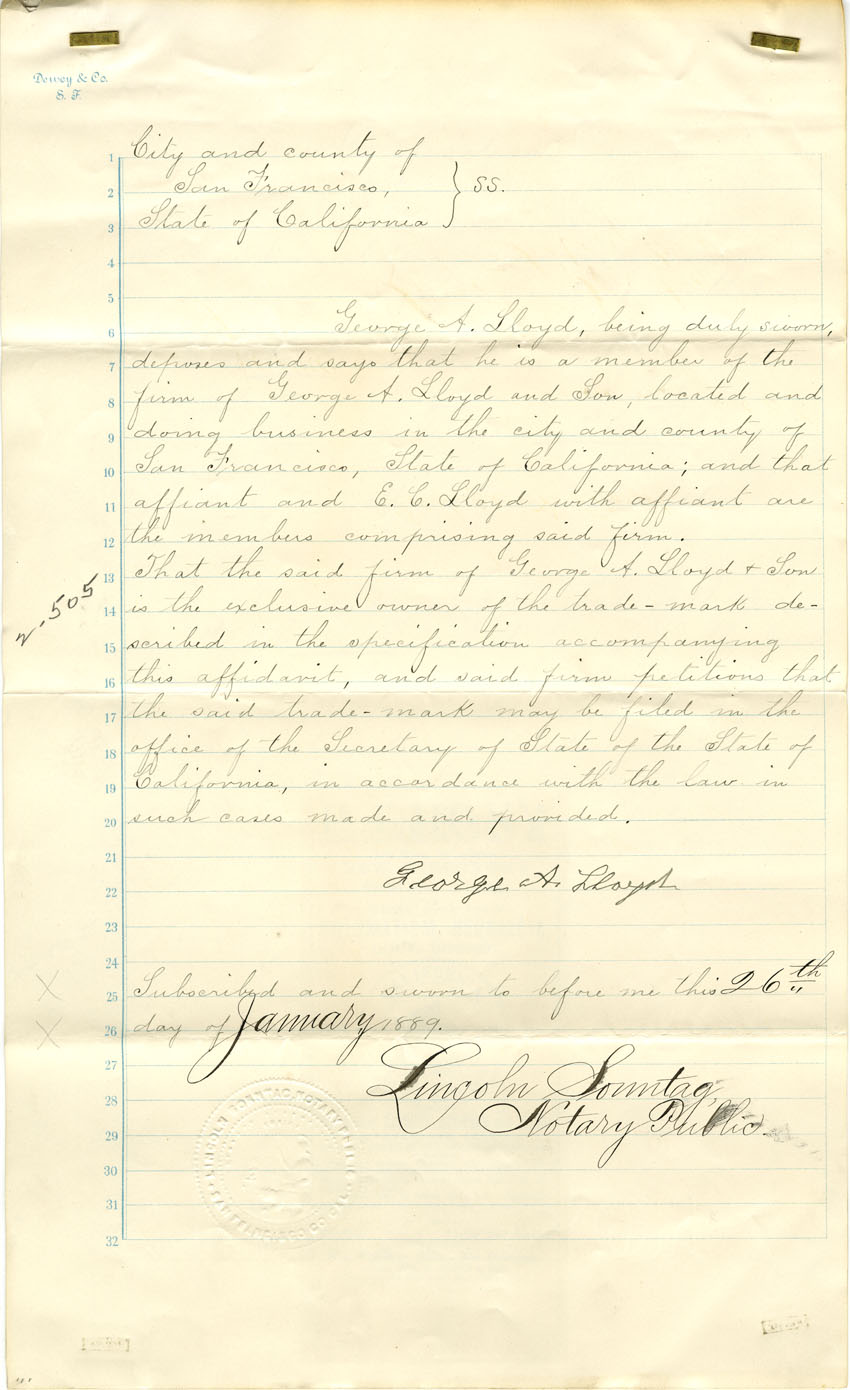 Dewey & Co.
S. F.
1 City and county of
2 San Francisco, } SS.
3 State of California
4
5
6 George A. Lloyd, being duly sworn,
7 deposes and says that he is a member of the
8 firm of George A. Lloyd and Son, located and
9 doing business in the city and county of
10 San Francisco, State of California; and that
11 affiant and E. C. Lloyd with affiant are
12 the members comprising said firm.
13 That the said firm of George A. Lloyd + Son
14 is the exclusive owner of the trade-mark de-
15 scribed in the specification accompanying
16 this affidavit, and said firm petitions that
17 the said trade-mark may be filed in the
18 office of the Secretary of State of the State of
19 California, in accordance with the law in
20 such cases made and provided.
21
22 George A. Lloyd
23
24
25 Subscribed and sworn to before me this 26th
26 day of January 1889.
27 Lincoln Sonntag,
28 Notary Public.
29
30
31
32
2-505
X
X
LINCOLN SONNTAG, NOTARY PUBLIC
SAN FRANCISCO CO. CAL.